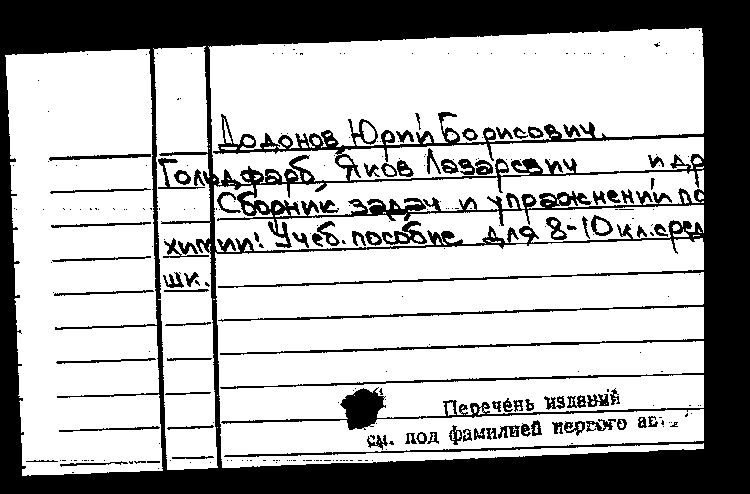 Додонов, Юрий Борисович.
Гольдфарб, Яков Лазаревич и др
Сборник задач и упражнений по
химии: Учеб. пособие для 8-10 кл. сред
шк.
Перечень изданий
см. под фамилией первого